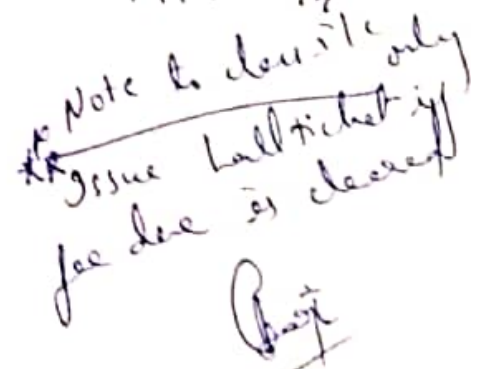 ** Note to
Issue Hallticket if only
fee due is cleared